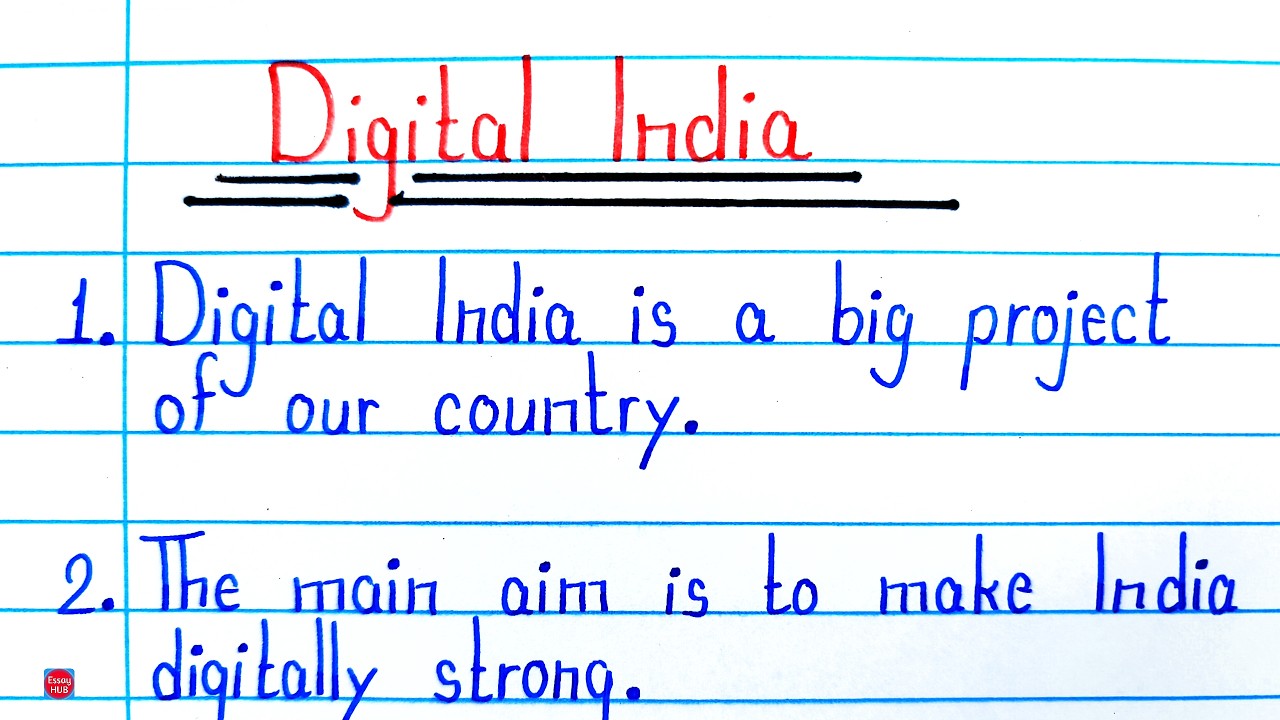 Digital India
1. Digital India is a big project
of our country.
2. The main aim is to make India
digitally strong.
Essay
HUB